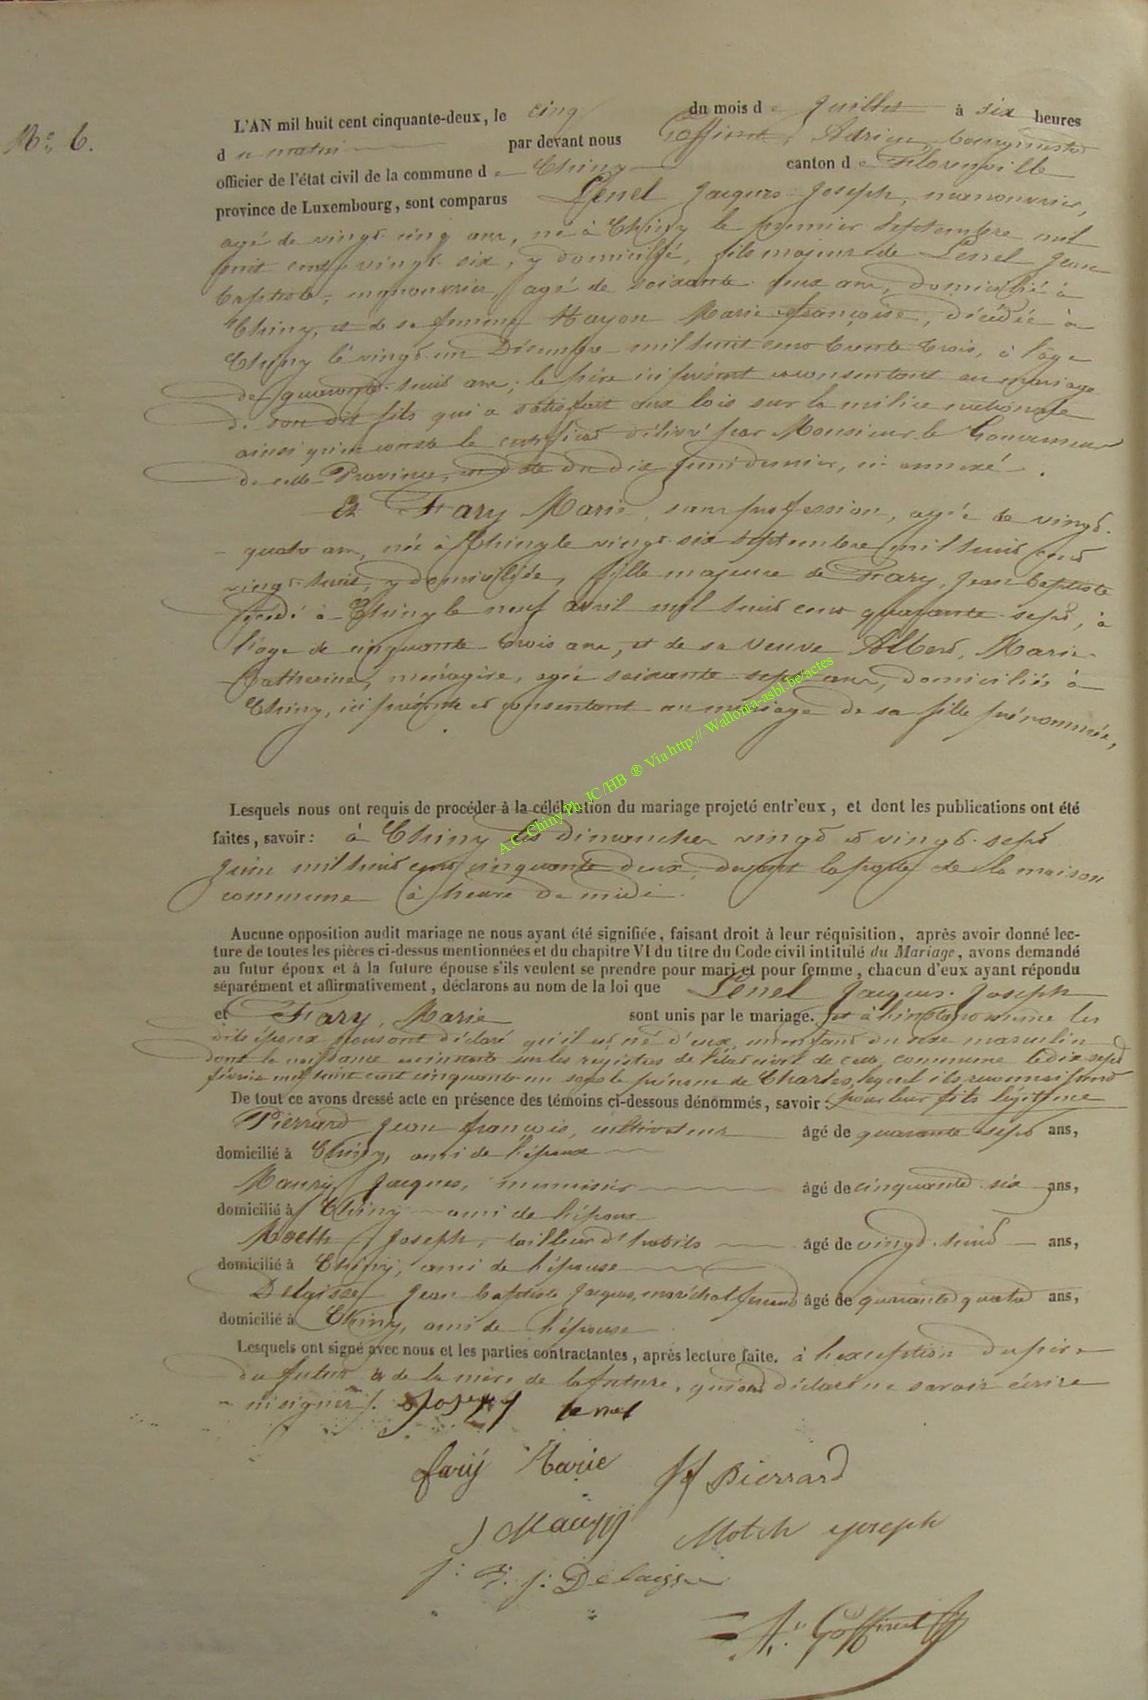 N° 6.
L'AN mil huit cent cinquante-deux, le cinq du mois de Juillet à six heures
du matin par devant nous Goffinet, Adrien, bourgmestre
officier de l'état civil de la commune de Chiny canton de Florenville
province de Luxembourg, sont comparus Lenel Jacques-Joseph, manouvrier,
agé de vingt-cinq ans, né à Chiny le premier septembre mil
huit cent vingt-six, y domicilié, fils majeur de Lenel Jean
baptiste, manouvrier, agé de soixante-deux ans, domicilié à
Chiny, et de sa femme Hayon Marie-françoise, décédée à
Chiny le vingt-un Décembre mil huit cent trente-trois, à l'âge
de quarante-huit ans; le père ici présent et consentant au mariage
de son dit fils qui a satisfait aux lois sur la milice nationale
ainsi qu'en conste le certificat délivré par Monsieur le Gouverneur
de cette Province, en date du dix Juin dernier, ci-annexé.
Et Fary Marie, sans profession, agée de vingt-
quatre ans, née à Chiny le vingt-six septembre mil huit cent
vingt-huit, y domiciliée, fille majeure de Fary, Jean baptiste
décédé à Chiny le neuf avril mil huit cent quarante-sept, à
l'âge de cinquante-trois ans, et de sa veuve Albert, Marie-
Catherine, ménagère, agée soixante-sept ans, domiciliée à
Chiny, ici présente et consentant au mariage de sa fille prénommée,
Lesquels nous ont requis de procéder à la célébration du mariage projeté entr'eux, et dont les publications ont été
faites, savoir: à Chiny les dimanches vingt et vingt-sept
Juin mil huit cent cinquante-deux, devant la porte de la maison
commune à l'heure de midi.
Aucune opposition audit mariage ne nous ayant été signifiée, faisant droit à leur réquisition, après avoir donné lec-
ture de toutes les pièces ci-dessus mentionnées et du chapitre VI du titre du Code civil intitulé du Mariage, avons demandé
au futur époux et à la future épouse s'ils veulent se prendre pour mari et pour femme, chacun d'eux ayant répondu
séparément et affirmativement, déclarons au nom de la loi que Lenel Jacques-Joseph
et Fary, Marie sont unis par le mariage. Et à l'instant même les
dits époux nous ont déclaré qu'il est né d'eux, un enfant du sexe masculin
dont la naissance est inscrite sur les registres de l'état civil de cette commune le dix-sept
février mil huit cent cinquante-un sous le prénom de Charles, lequel ils reconnaissent
De tout ce avons dressé acte en présence des témoins ci-dessous dénommés, savoir: pour leur fils légitime
Pierrard Jean françois, cultivateur âgé de quarante-sept ans,
domicilié à Chiny, ami de l'époux
Maury Jacques, menuisier âgé de cinquante-six ans,
domicilié à Chiny ami de l'époux
Motch Joseph, tailleur d'habits âgé de vingt-huit ans,
domicilié à Chiny, ami de l'épouse
Delaisse Jean baptiste Jacques, maréchal ferrant âgé de quarante quatre ans,
domicilié à Chiny, ami de l'épouse
Lesquels ont signé avec nous et les parties contractantes, après lecture faite. à l'exception du père
du futur et de la mère de la future, qui ont déclaré ne savoir écrire
ni signer.
Joseph lenel
fary Marie Jf Pierrard
J Maury Motch joseph
j: b: j: Delaisse
A. Goffinet
A.C. Chiny Ph. JC/HB ® Via http:// Wallonia-asbl.be/actes